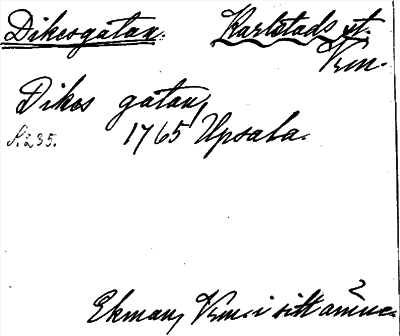 Dikesgatan. Karlstads st.
Vrm.
Dikes gatan,
S. 235. 1765 Upsala.
Ekman, Vrm. i sitt ämne